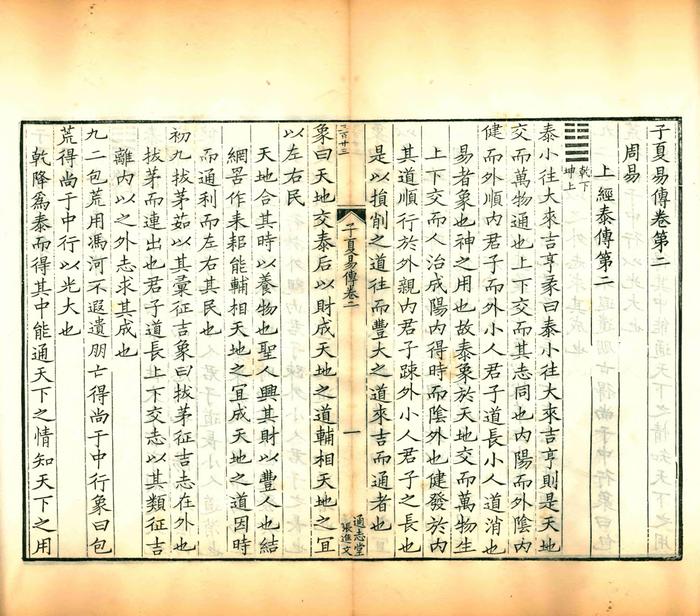 子夏易傳卷第二
周易
上經泰傳第二
乾下
坤上
泰小往大來吉亨彖曰泰小往大來吉亨則是天地
交而萬物通也上下交而其志同也內陽而外陰內
健而外順內君子而外小人君子道長小人道消也
易者象也神之用也故泰象於天地交而萬物生
上下交而人治成陽內得時而陰外也健發於內
其道順行於外親內君子踈外小人君子之長也
是以損削之道往而豐大之道來吉而通者也
二百廿三
子夏易傳卷二
一
通志堂
張進文
象曰天地交泰后以財成天地之道輔相天地之宜
以左右民
天地合其時以養物也聖人興其財以豐人也結
網罟作耒耜能輔相天地之宜成天地之道因時
而通利而左右其民也
初九拔茅茹以其彙征吉象曰拔茅征吉志在外也
拔茅而連出也君子道長上下交志以其類征吉
離內以之外志求其成也
九二包荒用馮河不遐遺朋亡得尚于中行象曰包
荒得尚于中行以光大也
乾降爲泰而得其中能通天下之情知天下之用